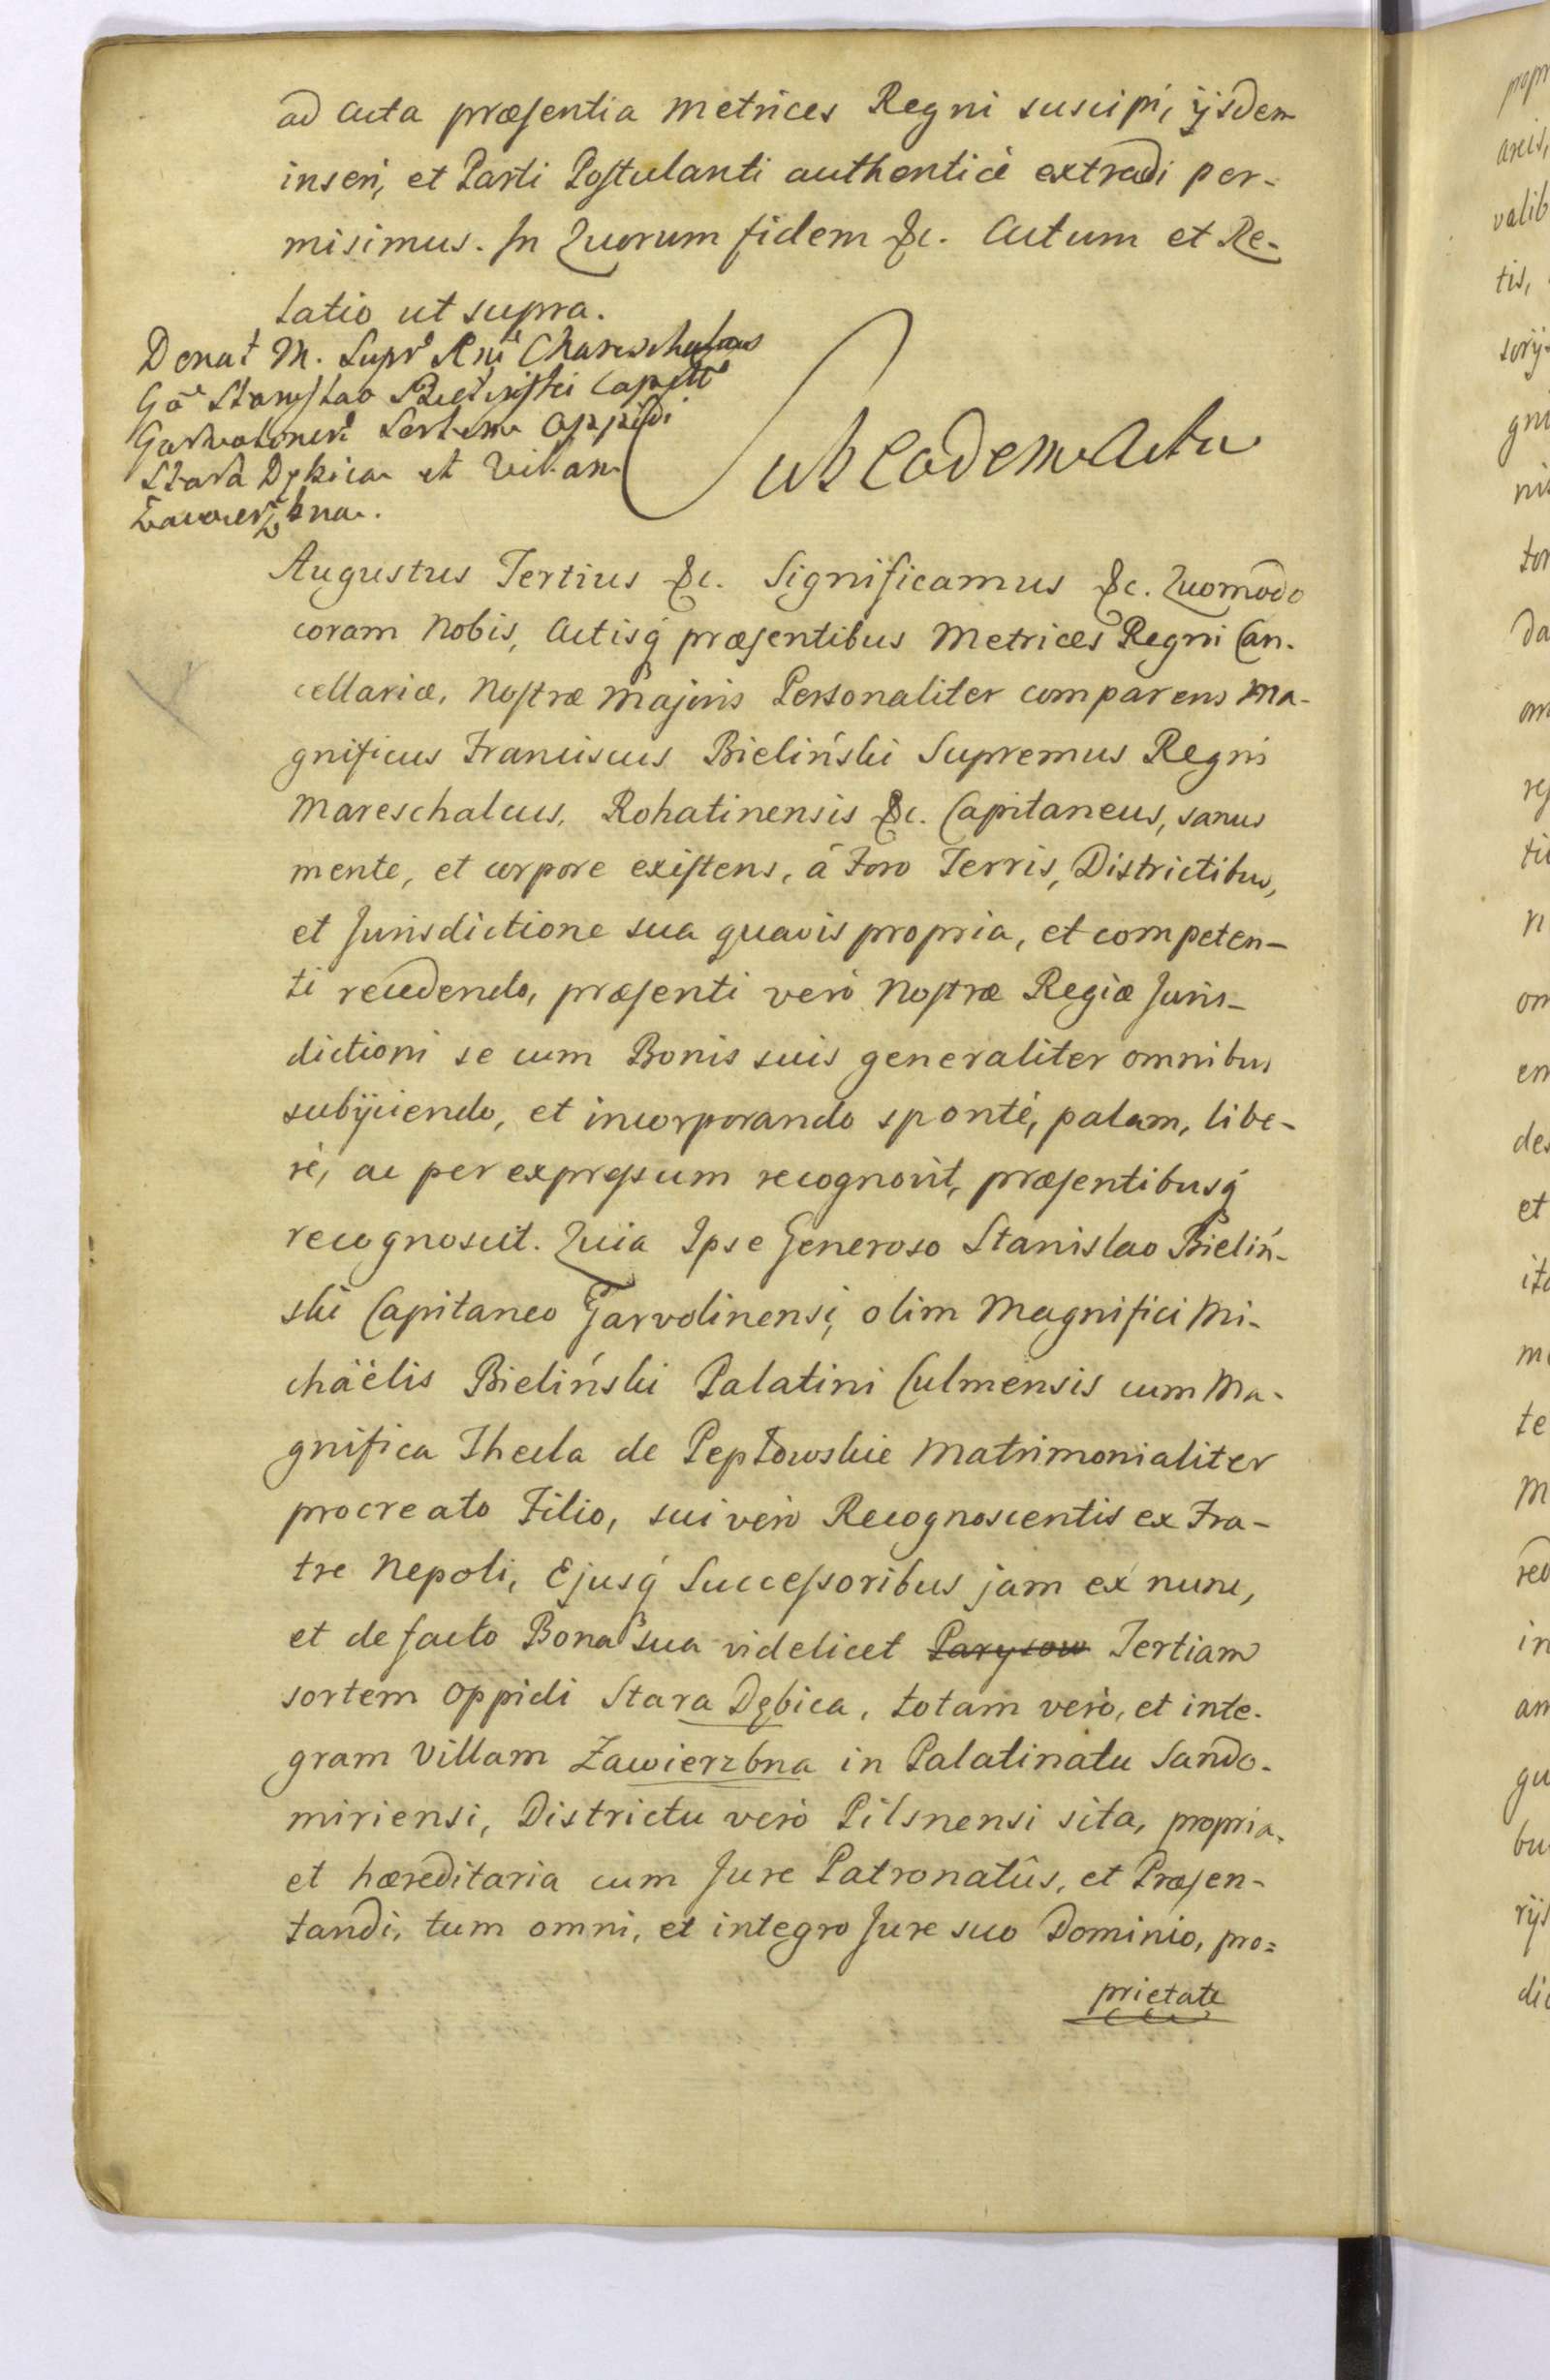 ad Acta præsentia Metrices Regni suscipi, ijsdem
inseri, et Parti Postulanti authenticè extradi per-
misimus. In Quorum fidem &c. Actum et Re-
latio ut supra.
Donat M. Supr Rni Mareschalcus
Gō Stanislao Bielinski Capitt
Garwolinen Sortem Oppidi
Stara Dębica et Villam
Zawierzbna.
Sub Eodem Actu
Augustus Tertius &c. Significamus &c. Quomodo
coram Nobis, Actisq́ præsentibus Metrices Regni Can-
cellariæ, Nostræ Majoris Personaliter comparens Ma-
gnificus Franciscus Bieliński Supremus Regni
Mareschalcus, Rohatinensis &c. Capitaneus, sanus
mente, et corpore existens, á Foro Terris, Districtibus,
et Jurisdictione sua quavis propria, et competen-
ti recedendo, præsenti verò Nostræ Regiæ Juris-
dictioni se cum Bonis suis generaliter omnibus
subijciendo, et incorporando spontè, palam, libe-
rè, ac per expressum recognovit, præsentibusq́
recognoscit. Quia Ipse Generoso Stanislao Bieliń-
ski Capitaneo Garvolinensi, olim Magnifici Mi-
chäëlis Bieliński Palatini Culmensis cum Ma-
gnifica Thecla de Pepłowskie Matrimonialiter
procreato Filio, sui verò Recognoscentis ex Fra-
tre Nepoti, Ejusq́ Successoribus jam ex nunc,
et de facto Bona sua videlicet Parysow Tertiam
sortem Oppidi Stara Dębica, totam verò, et inte-
gram Villam Zawierzbna in Palatinatu Sando-
miriensi, Districtu verò Pilsnensi sita, propria,
et hæreditaria cum Jure Patronatûs, et Præsen-
tandi, tum omni, et integro Jure suo Dominio, pro=
prietate